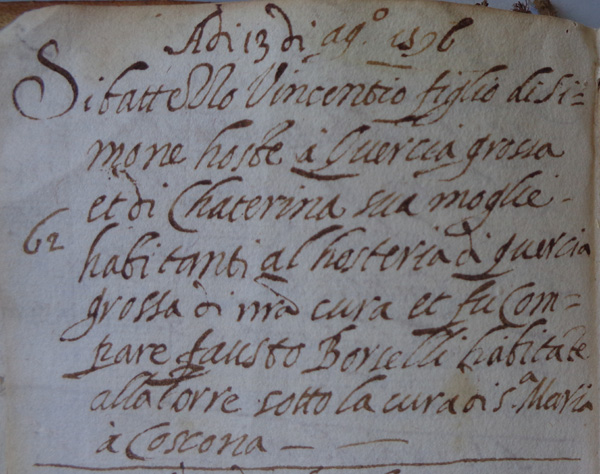 Adi 13 di ag.º 1596
Si batteẓẓo Vincentio figlio di Si=
mone hoste à Quercia grossa
et di Chaterina sua moglie
62 habitanti al hesteria di quercia
grossa di nrā cura et fu Com=
pare fausto Borselli habitāte
alla Torre sotto la cura di s.ª Maria
à Coscona